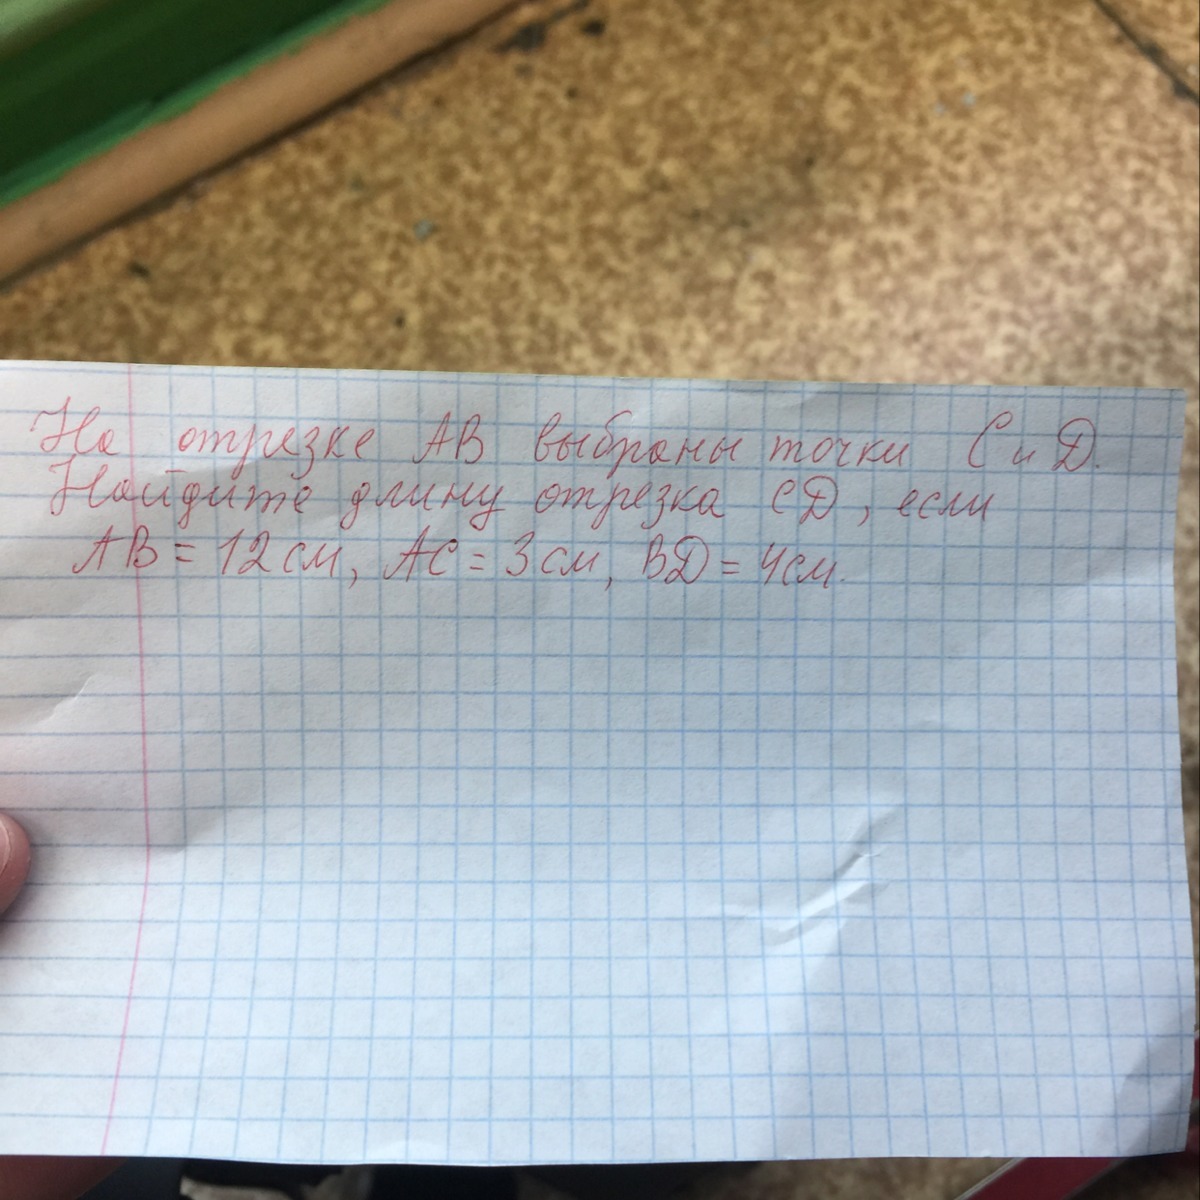 На отрезке АВ выбраны точки С и D.
Найдите длину отрезка CD, если
АВ = 12 см, АС = 3 см, BD = 4 см.